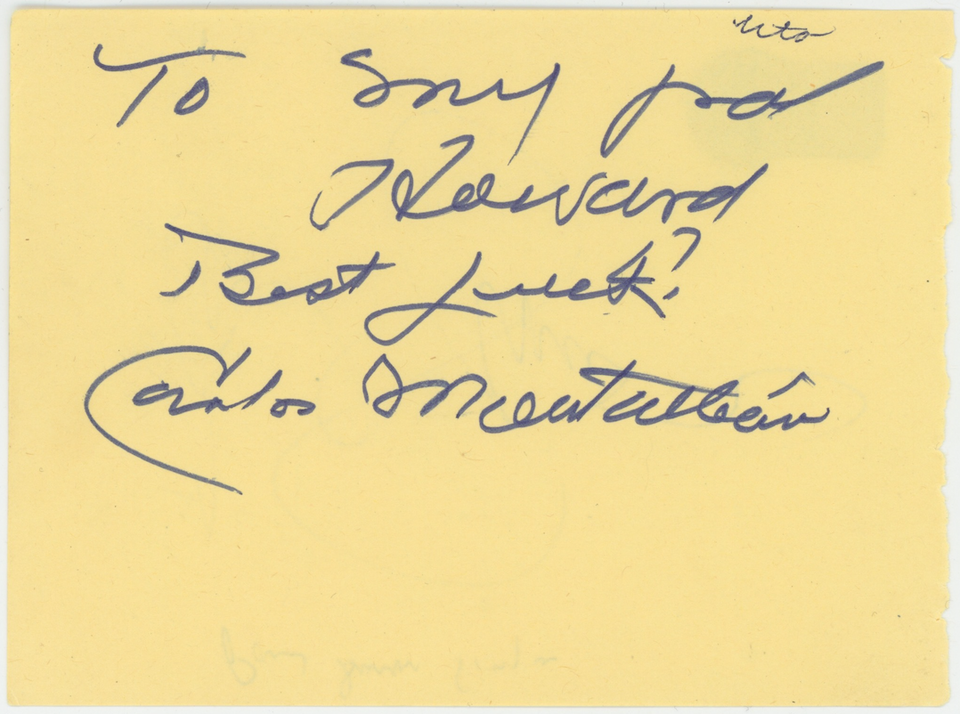 To my pal
Howard
Best Luck!
Carlos Montalbán